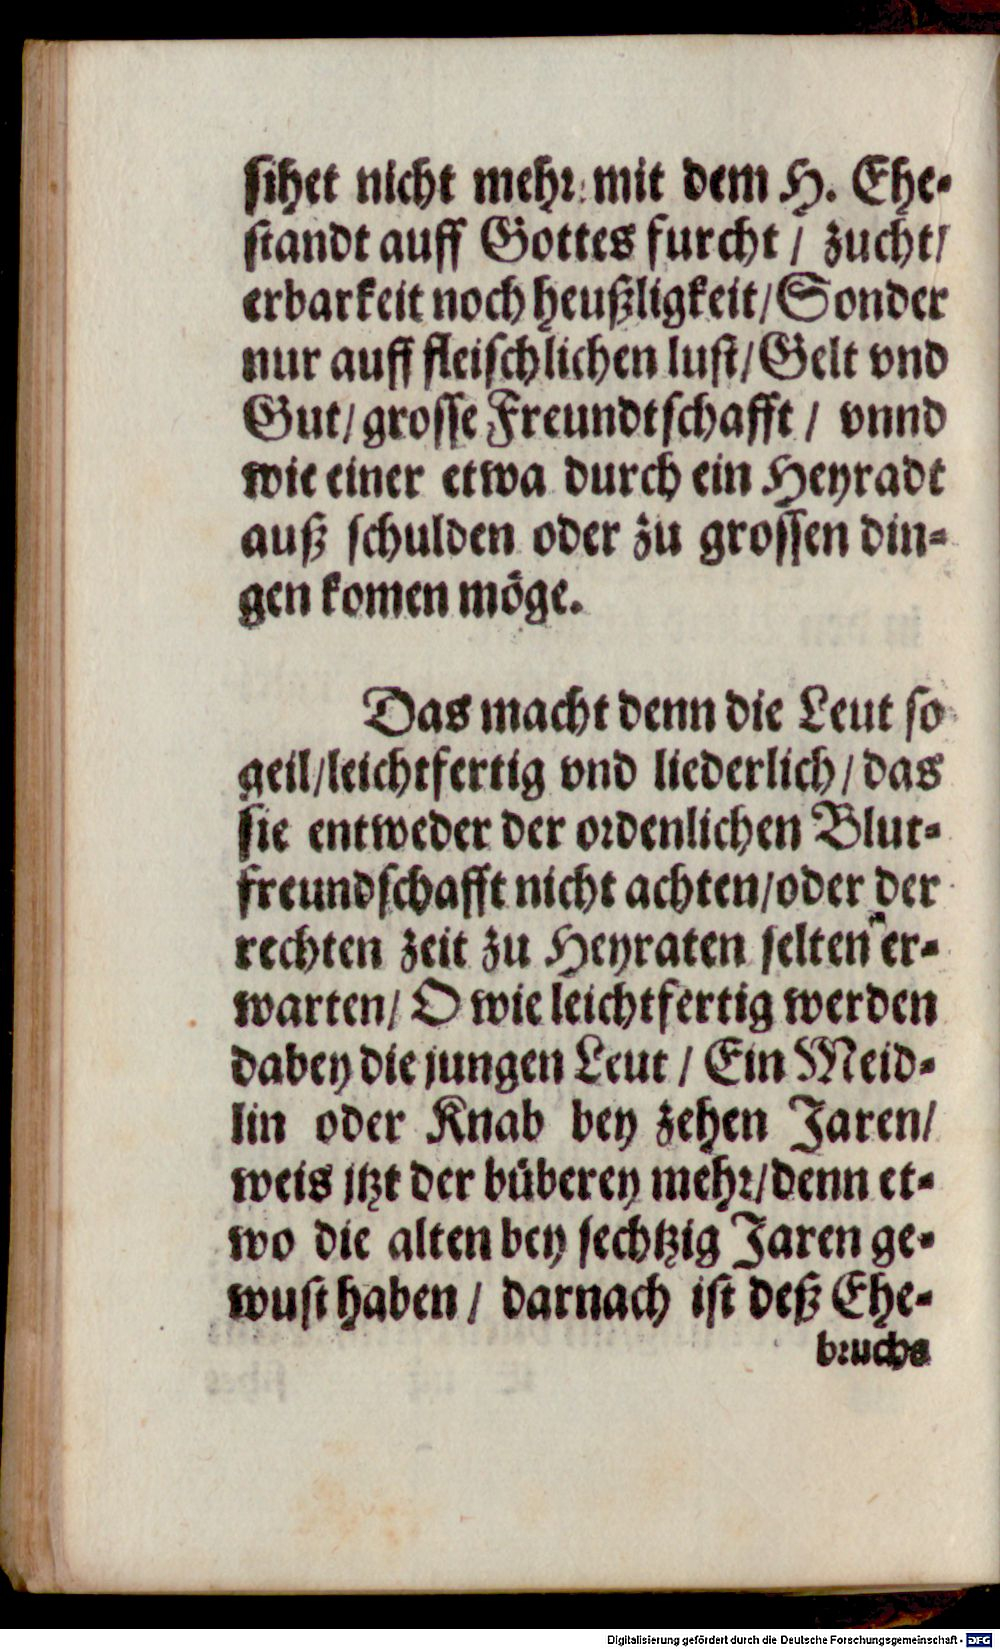 sihet nicht mehr mit dem H. Ehe-
standt auff Gottes furcht / zucht/
erbarkeit noch heußligkeit/ Sonder
nur auff fleischlichen lust/ Gelt vnd
Gut/ grosse Freundtschafft / vnnd
wie einer etwa durch ein Heyradt
auß schulden oder zu grossen din-
gen komen möge.
Das macht denn die Leut so
geil/leichtfertig vnd liederlich/ das
sie entweder der ordenlichen Blut-
freundschafft nicht achten/oder der
rechten zeit zu Heyraten selten er-
warten/ O wie leichtfertig werden
dabey die jungen Leut / Ein Meid-
lin oder Knab bey zehen Jaren/
weis jtzt der büberey mehr/denn et-
wo die alten bey sechtzig Jaren ge-
wust haben / darnach ist deß Ehe-
bruchs
Digitalisierung gefördert durch die Deutsche Forschungsgemeinschaft - DFG